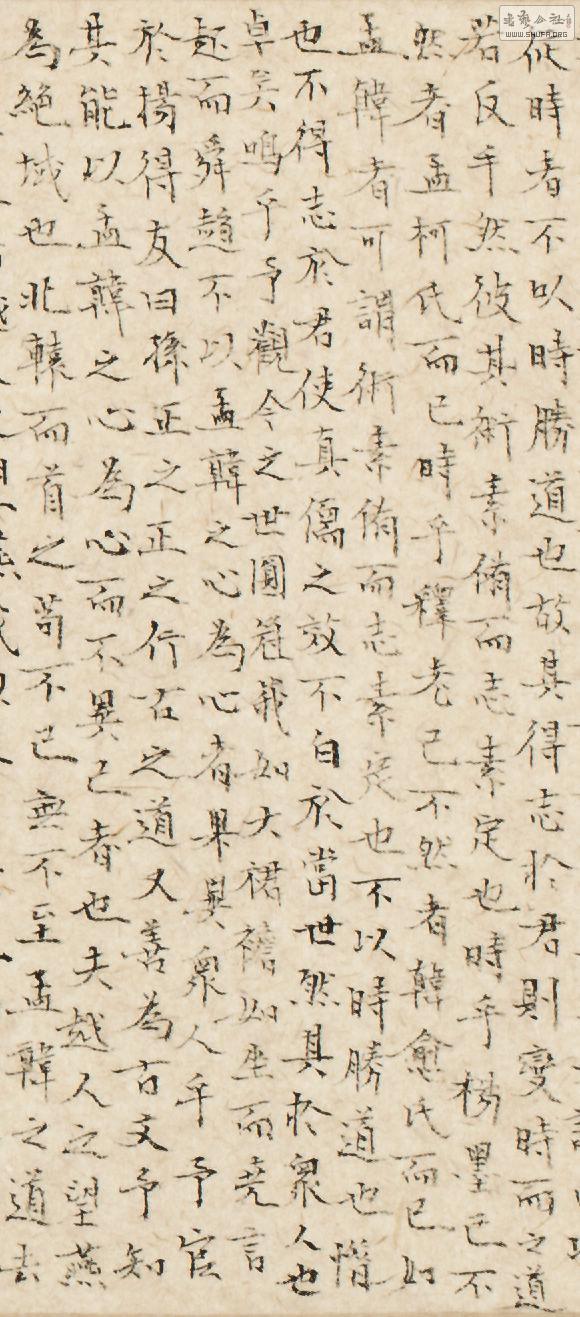 從時者不以時勝道也故其得志於君則變時而之道
若反手然彼其術素脩而志素定也時乎楊墨已不
然者孟柯氏而已時乎釋老已不然者韓愈氏而已如
孟韓者可謂術素脩而志素定也不以時勝道也惜
也不得志於君使真儒之效不白於當世然其於衆人也
卓矣嗚乎予觀今之世圓冠莪如大裙襜如坐而堯言
起而舜趨不以孟韓之心為心者果異衆人乎予官
於揚得友曰孫正之正之行古之道又善為古文予知
其能以孟韓之心為心而不異已者也夫越人之望燕
為絕域也北轅而首之苟不已無不至孟韓之道去
书艺公社
WWW.SHUFA.ORG